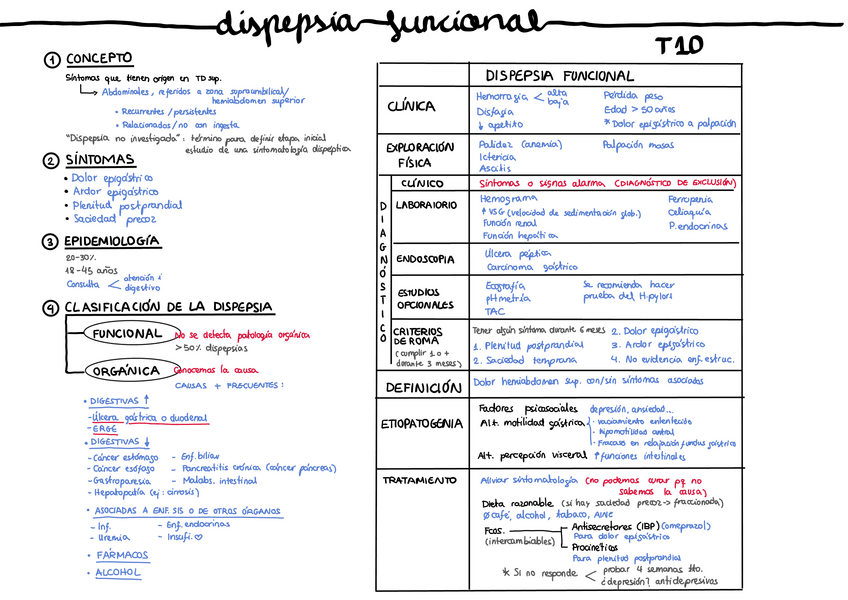 dispepsia funcional
T10
① CONCEPTO
Síntomas que tienen origen en TD sup.
Abdominales, referidos a zona supraumbilical/
hemiabdomen superior
• Recurrentes/persistentes
• Relacionados/no con ingesta
"Dispepsia no investigada": término para definir etapa inicial
estudio de una sintomatología dispéptica
② SÍNTOMAS
• Dolor epigástrico
• Ardor epigástrico
• Plenitud postprandial
• Saciedad precoz
③ EPIDEMIOLOGÍA
20-30%
18-45 años
Consulta < atención 1ª
digestivo
④ CLASIFICACIÓN DE LA DISPEPSIA
FUNCIONAL No se detecta patología orgánica
>50% dispepsias
ORGÁNICA Conocemos la causa
CAUSAS + FRECUENTES:
• DIGESTIVAS ↑
- Úlcera gástrica o duodenal
- ERGE
• DIGESTIVAS ↓
- Cáncer estómago - Enf. biliar
- Cáncer esófago - Pancreatitis crónica (cáncer páncreas)
- Gastroparesia - Malabs. intestinal
- Hepatopatía (ej: cirrosis)
• ASOCIADAS A ENF. SIS O DE OTROS ÓRGANOS
- Inf. - Enf. endocrinas
- Uremia - Insufi. ♡
• FÁRMACOS
• ALCOHOL
DISPEPSIA FUNCIONAL
CLÍNICA
Hemorragia < alta
baja
Disfagia
↓ apetito
Pérdida peso
Edad > 50 años
* Dolor epigástrico a palpación
EXPLORACIÓN
FÍSICA
Palidez (anemia)
Ictericia
Ascitis
Palpación masas
DIAGNÓSTICO
CLÍNICO
Síntomas o signos alarma (DIAGNÓSTICO DE EXCLUSIÓN)
LABORATORIO
Hemograma
↑ VSG (velocidad de sedimentación glob.)
Función renal
Función hepática
Ferropenia
Celiaquía
P. endocrinas
ENDOSCOPIA
Úlcera péptica
Carcinoma gástrico
ESTUDIOS
OPCIONALES
Ecografía
pHmetría
TAC
Se recomienda hacer
prueba del H. pylori
CRITERIOS
DE ROMA
(cumplir 1 o +
durante 3 meses)
Tener algún síntoma durante 6 meses
1. Plenitud postprandial
2. Saciedad temprana
2. Dolor epigástrico
3. Ardor epigástrico
4. No evidencia enf. estruc.
DEFINICIÓN
Dolor hemiabdomen sup. con/sin síntomas asociados
ETIOPATOGENIA
Factores psicosociales depresión, ansiedad...
Alt. motilidad gástrica - vaciamiento enlentecido
- Hipomotilidad antral
- Fracaso en relajación fundus gástrico
Alt. percepción visceral ↑ funciones intestinales
TRATAMIENTO
Aliviar sintomatología (no podemos curar pq no
sabemos la causa)
Dieta razonable (si hay saciedad precoz -> fraccionada)
Ø café, alcohol, tabaco, AINE
Fcos.
(intercambiables)
Antisecretores (IBP) (omeprazol)
Para dolor epigástrico
Procinéticos
Para plenitud postprandial
* Si no responde < probar 4 semanas tto.
¿depresión? antidepresivos